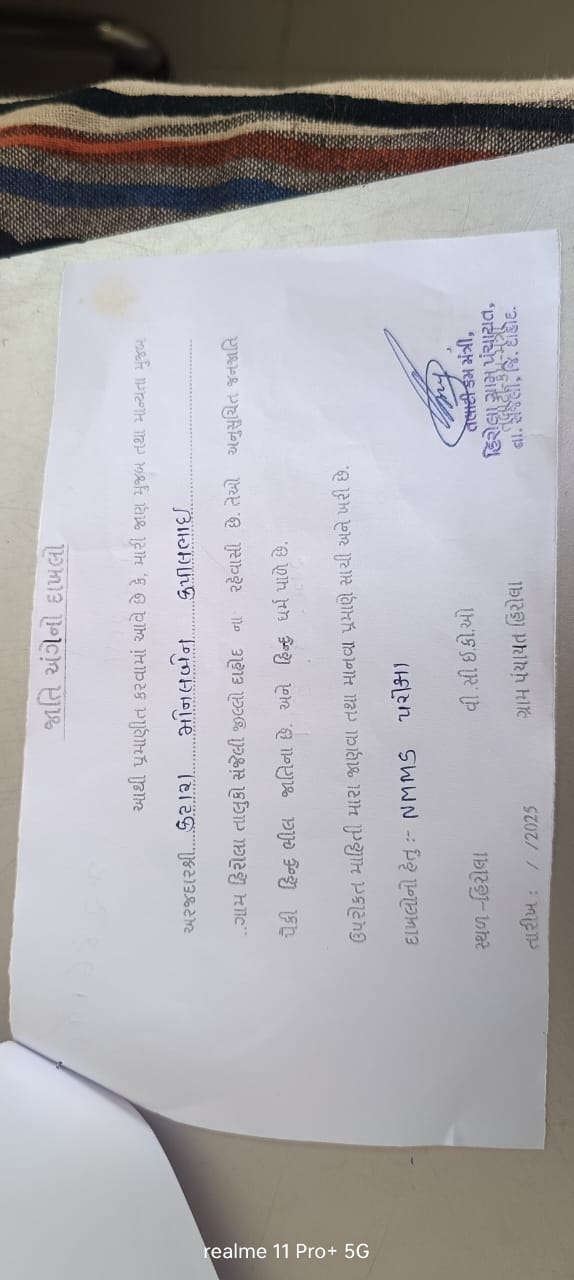 જાતિ અંગેનો દાખલો
આથી પ્રમાણીત કરવામાં આવે છે કે, મારી જાણ મુજબ તથા માન્યતા મુજબ
અરજદારશ્રી કટારા ઉપાલભાઇ
..ગામ હિરોલા તાલુકો સંજેલી જીલ્લો દાહોદ ના રહેવાસી છે. તેઓ અનુસુચિત જનજાતિ
પૈકી હિન્દુ ભીલ જાતિના છે. અને હિન્દુ ધર્મ પાળે છે.
ઉપરોકત માહિતી મારા જાણવા તથા માનવા પ્રમાણે સાચી અને ખરી છે.
દાખલોનો હેતુ :- NMMS પરીક્ષા
સ્થળ -હિરોલા વી.સી ઇ.કો.ઓ
તારીખ : / /2025 ગ્રામ પંચાયત હિરોલા
તલાટી કમ મંત્રી,
હિરોલા ગ્રામ પંચાયત,
તા. સંજેલી, જિ. દાહોદ.
realme 11 Pro+ 5G